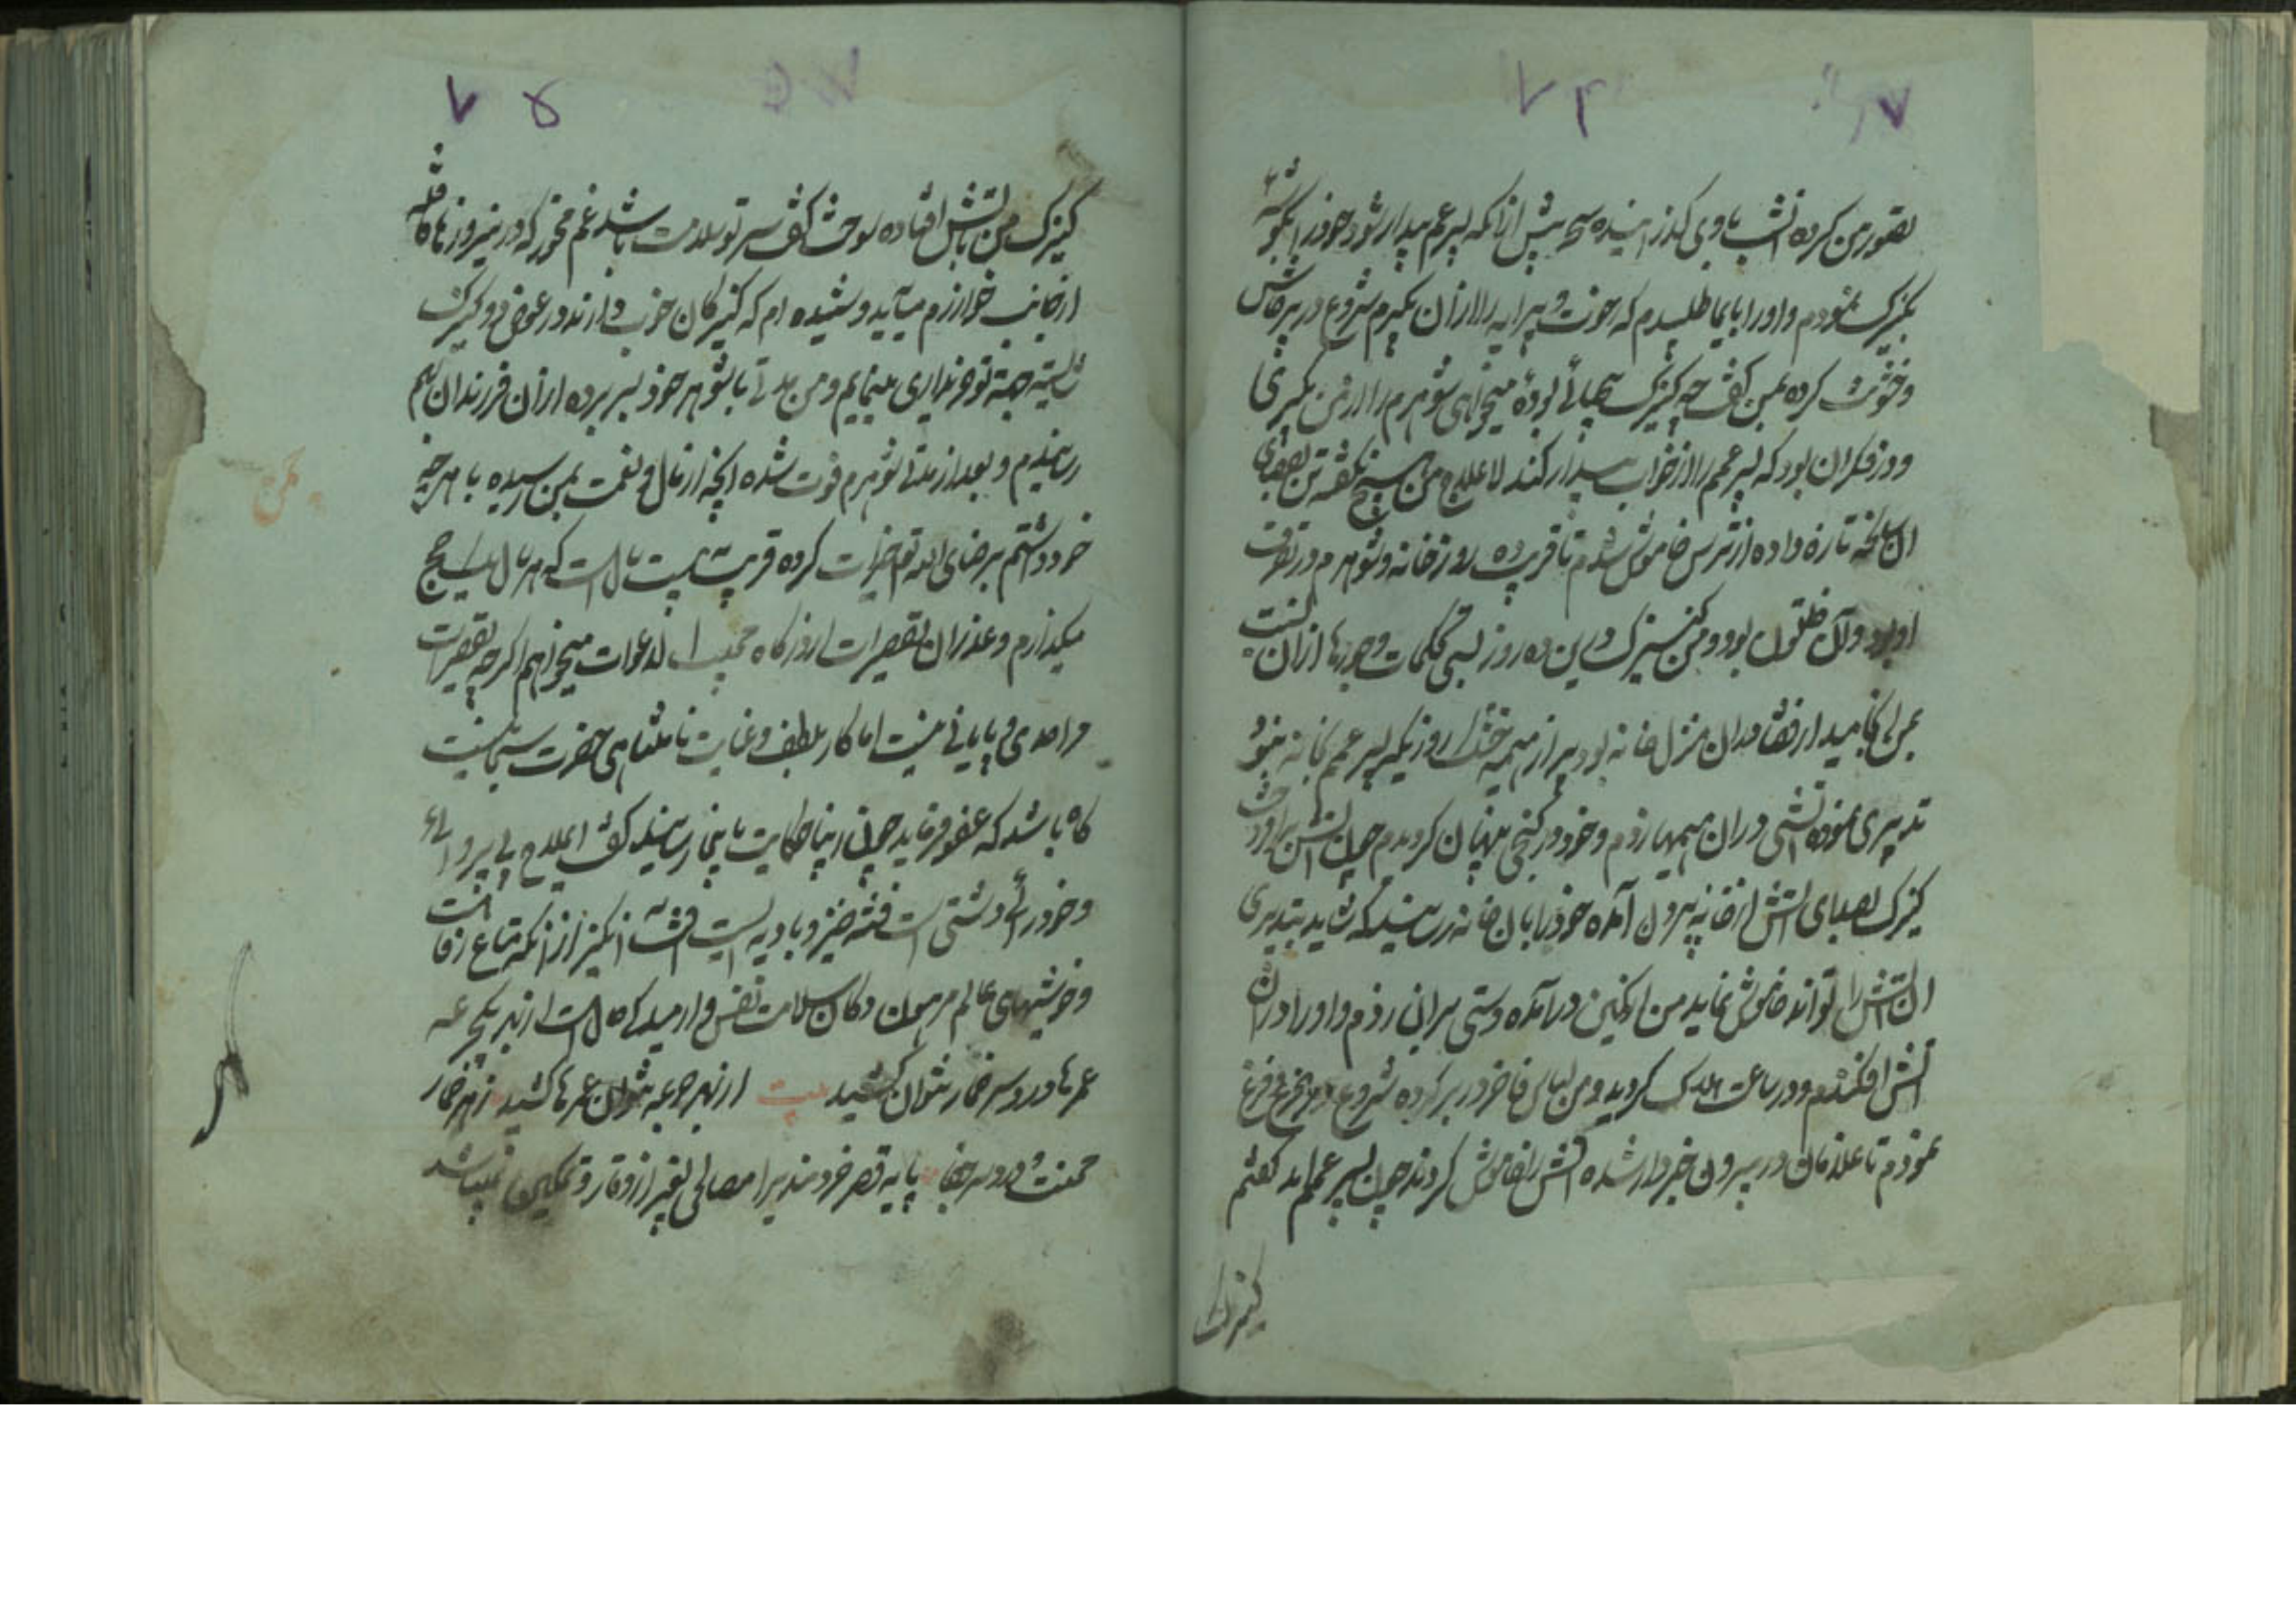 ۷۴
تصور من کرده انشب با وی کذرانیده سحر پیش از آنکه پسر عم بیدار شود خود را بکوشه
بکنیزک نمودم و او را بایما طلبیدم که رخوت و پیرایه را از آن بگیرم شروع در پرخاش
و خشونت کرده بمن کفت چه کنیزک بیحیائی بودهٔ میخواهی شوهرم را از من بگیری
و در فکر آن بود که پسر عمم را از خواب بیدار کند لاعلاج من هیچ نکفته تن بقضای
تازه داده از ترس خاموش شدم تا قریب ده روز خانه و شوهرم در تصرف
او بود و من کنیزک و این ده روز بسی تحکمات و جورها از آن
بمن در آن منزل خانه بود پر از هیمه خشک روزیکه پسر عمم بخانه نبود
تدبیری نموده آتشی در آن هیمها زدم و خود در کنجی پنهان کردیدم چون آتش برافروخت
کنیزک بصدای آتش از خانه بیرون آمده خود را بآن خانه رسانید که شاید بتدبیری
آن آتش را تواند خاموش نماید من از کمین درآمده دستی بر آن زدم و او را در آن
آتش افکندم و در ساعت هلاک کردید و من لباس فاخر در بر کرده شروع در جزع و فزع
نمودم تا غلامان در بیرون خبردار شده آتش را خاموش کردند چون پسر عمم آمد کفتم
کنیزک
۷۵
کنیزک من بآتش افتاده سوخت کفت سر تو سلامت باشد غم مخور که درینروزها قافله
از جانب خوارزم میآید و شنیده ام که کنیزکان خوب دارند در عوض دو کنیزک
شایسته جهة تو خریداری مینمایم و من مدتی با شوهر خود بسر برده از آن فرزندان بهم
رسانیدم و بعد از مدتی شوهرم فوت شده آنچه از مال و نعمت بمن رسیده با هرچه
خود داشتم برضای الله تعالی خیرات کرده قریب به بیست سالست که هر سال یک حج
میکذارم و عذر آن تقصیرات از درکاه مجیب الدعوات میخواهم اکرچه تقصیرات
مرا حدی و پایانی نیست اما کار بلطف و عنایت نامتناهی حضرت سبحانیست
کاه باشد که عفو فرماید چون اینحکایت باینجا رسانید کفت ای ملاح بی پروائی
و خودرائی دشتی است فتنه خیز و بادیه ایست آفت انکیز از آنکه متاع رفاهت
و خوشیهای عالم مرهون دکان سلامت نفس و آرمیدکی حالست از بهر یکجرعه
عمرها درد سر خمار نتوان کشید بیت از بهر جرعه نتوان عمرها کشید زهر خمار
محنت و درد سر جفا پایه قصر خردمندی را مصالحی بغیر از وقار و تمکین نمیباشد